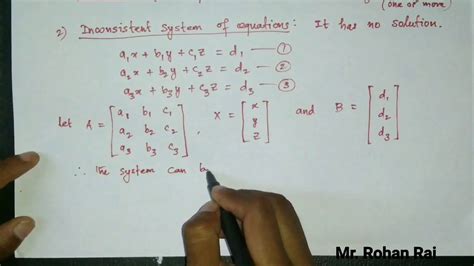 (one or more)
2) Inconsistent system of equations: It has no solution.
a₁x + b₁y + c₁z = d₁ — ①
a₂x + b₂y + c₂z = d₂ — ②
a₃x + b₃y + c₃z = d₃ — ③
let A = [a₁ b₁ c₁ a₂ b₂ c₂ a₃ b₃ c₃], X = [x y z] and B = [d₁ d₂ d₃]
∴ The system can b
Mr. Rohan Rai